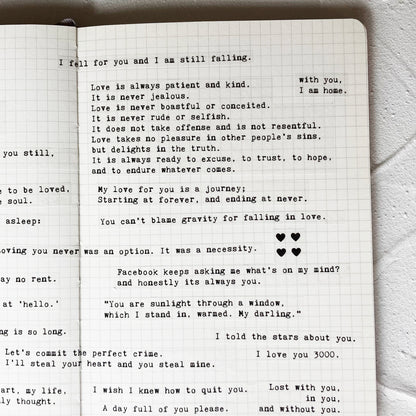 I fell for you and I am still falling.
with you,
I am home.
Love is always patient and kind.
It is never jealous.
Love is never boastful or conceited.
It is never rude or selfish.
It does not take offense and is not resentful.
Love takes no pleasure in other people's sins,
but delights in the truth.
It is always ready to excuse, to trust, to hope,
and to endure whatever comes.
you still,
e to be loved,
e soul.
My love for you is a journey;
Starting at forever, and ending at never.
asleep:
You can't blame gravity for falling in love.
oving you never was an option. It was a necessity.
ay no rent.
Facebook keeps asking me what's on my mind?
and honestly its always you.
at 'hello.'
"You are sunlight through a window,
which I stand in, warmed. My darling."
ng is so long.
I told the stars about you.
Let's commit the perfect crime.
I'll steal your heart and you steal mine.
I love you 3000.
art, my life.
ly thought.
I wish I knew how to quit you.
A day full of you please.
Lost with you,
in you,
and without you.